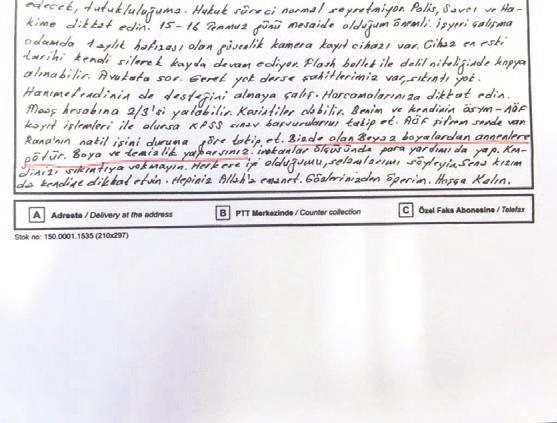 edecek, tutukluluğuma. Hukuk süreci normal seyretmiyor. Polis, Savcı ve Ha-
kime dikkat edin. 15-16 Temmuz günü mesaide olduğum önemli. işyeri çalışma
odamda 1 aylık hafızası olan güvenlik kamera kayıt cihazı var. Cihaz en eski
tarihi kendi silerek kayda devam ediyor. Flash bellek ile delil niteliğinde kopya
alınabilir. Avukata sor. Gerek yok derse şahitlerimiz var, sıkıntı yok.
Hanımefendinin de desteğini almaya çalış. Harcamalarınıza dikkat edin.
Maaş hesabına 2/3'si yatabilir. Kesintiler olabilir. Benim ve kendinin ösym-AÖF
kayıt işlemleri ile olursa KPSS sınav başvurularını takip et. AÖF şifrem sende var
Rana'nın nakil işini duruma göre takip et. Bizde olan Beyaz boyalardan annenlere
götür. Boya ve temizlik yaparsınız. imkanlar ölçüsünde para yardımı da yap. Ken-
dinizi sıkıntıya sokmayın. Herkese iyi olduğumu, selamlarımı söyleyin. Sena kızım
da kendine dikkat etsin. Hepiniz Allah'a emanet. Gözlerinizden öperim. Hoşça Kalın.
A Adreste / Delivery at the address B PTT Merkezinde / Counter collection C Özel Faks Abonesine / Telefax
Stok no: 150.0001.1535 (210x297)